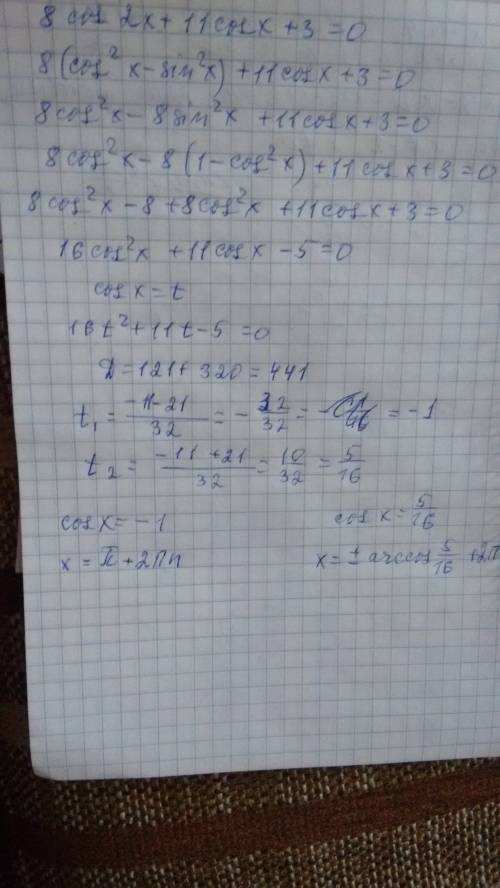 8 cos 2x + 11 cos x + 3 = 0
8 (cos² x - sin² x) + 11 cos x + 3 = 0
8 cos² x - 8 sin² x + 11 cos x + 3 = 0
8 cos² x - 8 (1 - cos² x) + 11 cos x + 3 = 0
8 cos² x - 8 + 8 cos² x + 11 cos x + 3 = 0
16 cos² x + 11 cos x - 5 = 0
cos x = t
16 t² + 11 t - 5 = 0
Д = 121 + 320 = 441
t₁ = (-11-21)/32 = - 32/32 = = -1
t₂ = (-11 + 21)/32 = 10/32 = 5/16
cos x = -1 cos x = 5/16
x = π + 2πn x = ± arccos 5/16 + 2π